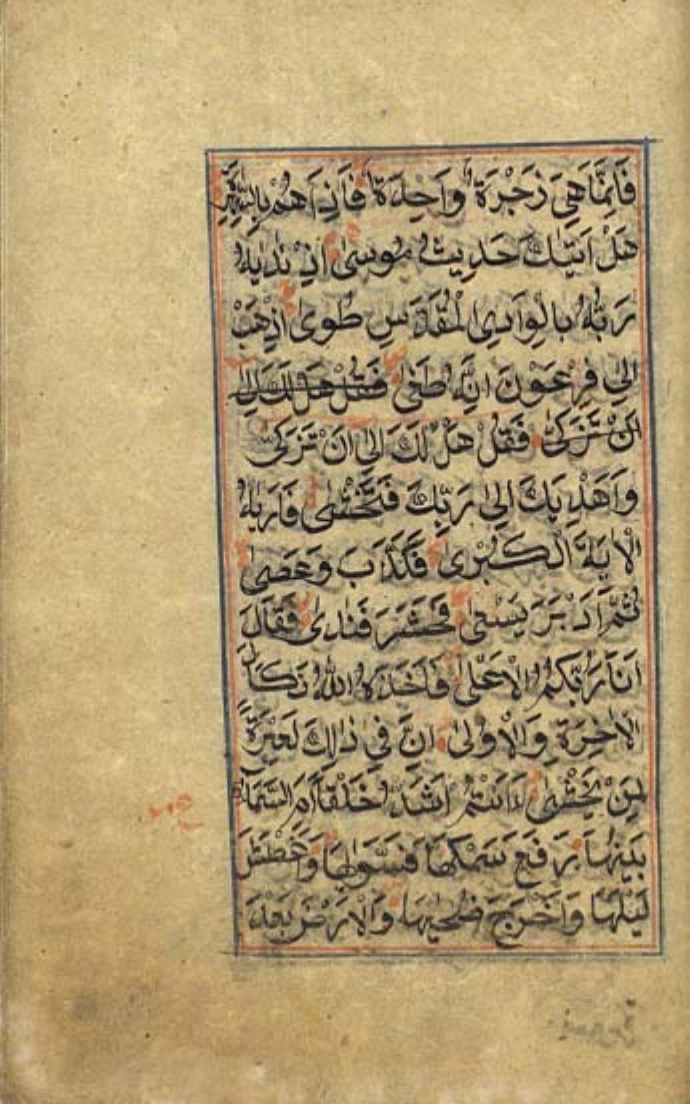 فَاِنَّمَا هِىَ زَجْرَةٌ وَاحِدَةٌ فَاِذَا هُمْ بِالسَّاهِرَةِ
هَلْ اَتٰىكَ حَدِيثُ مُوسٰى اِذْ نٰدٰىهُ
رَبُّهُ بِالْوَادِى الْمُقَدَّسِ طُوًى اِذْهَبْ
اِلٰى فِرْعَوْنَ اِنَّهُ طَغٰى فَقُلْ هَلْ لَكَ اِلٰى
اَنْ تَزَكّٰى فَقُلْ هَلْ لَكَ اِلٰى اَنْ تَزَكّٰى
وَاَهْدِيَكَ اِلٰى رَبِّكَ فَتَخْشٰى فَاَرٰىهُ
الْاٰيَةَ الْكُبْرٰى فَكَذَّبَ وَعَصٰى
ثُمَّ اَدْبَرَ يَسْعٰى فَحَشَرَ فَنَادٰى فَقَالَ
اَنَا رَبُّكُمُ الْاَعْلٰى فَاَخَذَهُ اللّٰهُ نَكَالَ
الْاٰخِرَةِ وَالْاُولٰى اِنَّ فِى ذٰلِكَ لَعِبْرَةً
لِمَنْ يَخْشٰى ءَاَنْتُمْ اَشَدُّ خَلْقًا اَمِ السَّمَاءُ
بَنٰيهَا رَفَعَ سَمْكَهَا فَسَوّٰيهَا وَاَغْطَشَ
لَيْلَهَا وَاَخْرَجَ ضُحٰيهَا وَالْاَرْضَ بَعْدَ